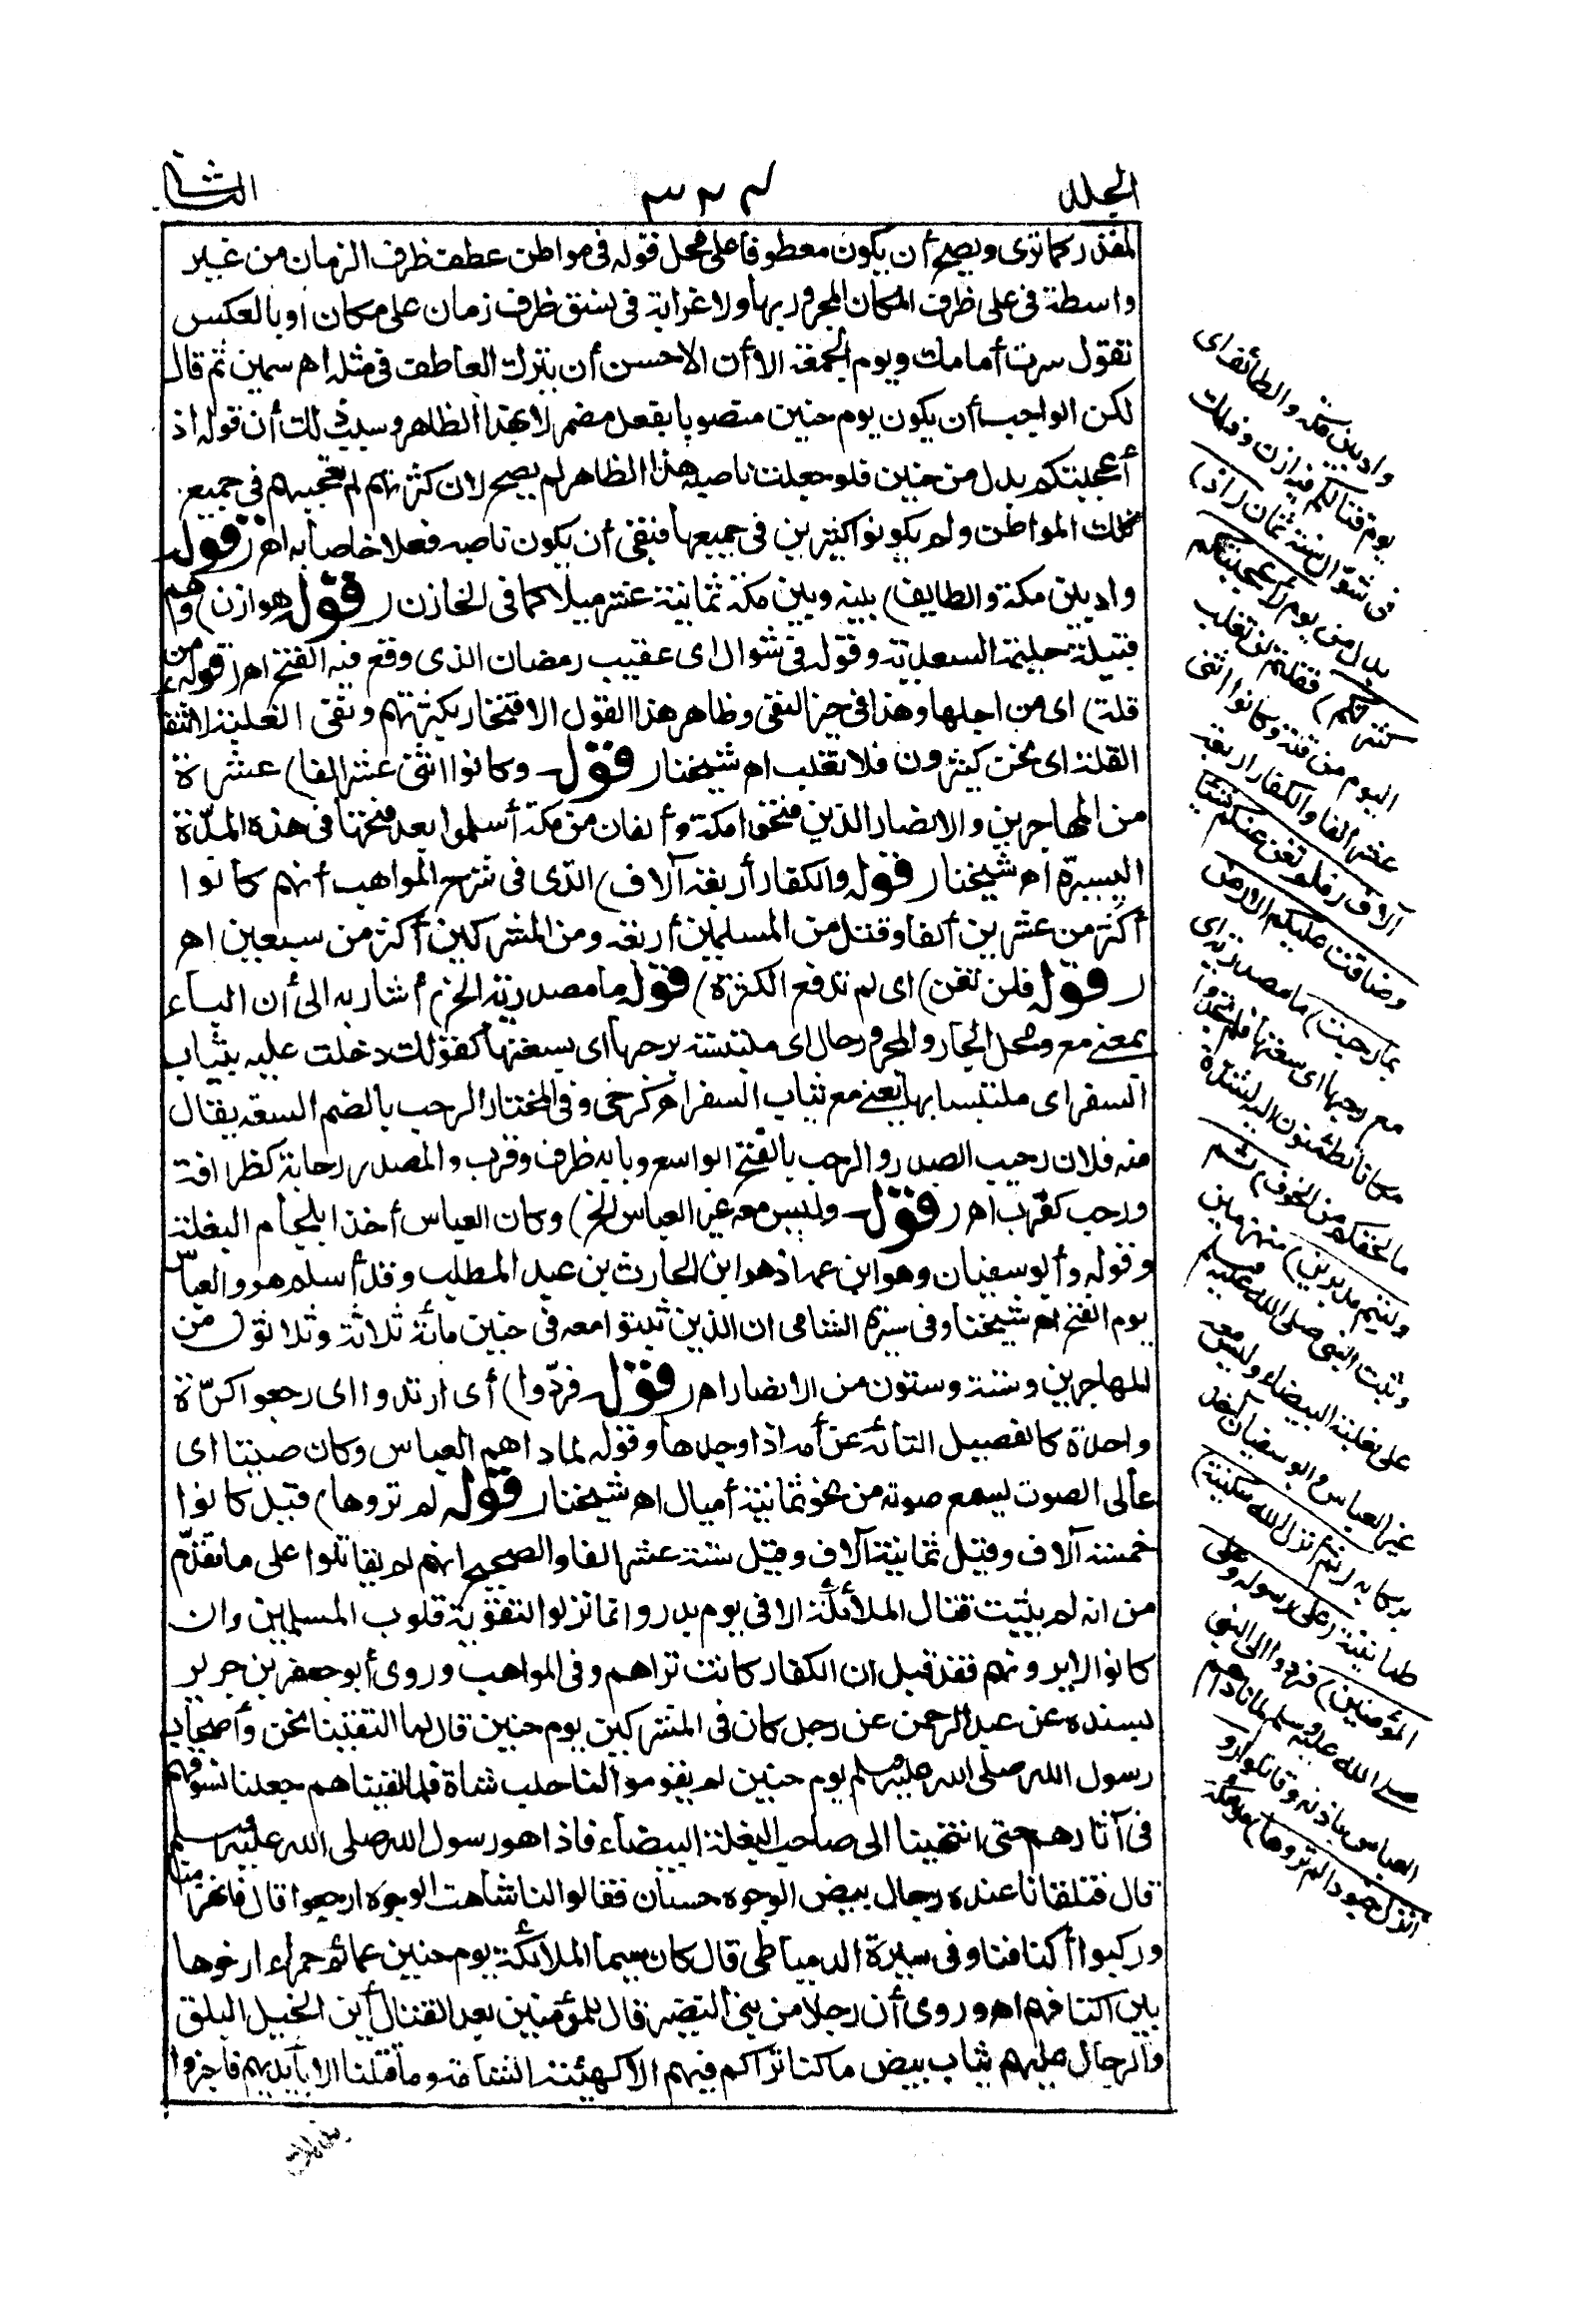 الجلد
٣٢٤
الثانى
المقدر كما ترى ويصح أن يكون معطوفا على محل قوله فى مواطن عطف ظرف الزمان من غير
واسطة فى على ظرف المكان المجرور بها ولا غرابة فى نسق ظرف زمان على مكان او بالعكس
تقول سرت أمامك ويوم الجمعة الا أن الاحسن أن يترك العاطف فى مثله اهـ سمين ثم قال
لكن الواجب أن يكون يوم حنين منصوبا بفعل مضمر لا بهذا الظاهر وسبب ذلك أن قوله اذ
أعجبتكم بدل من حنين فلو جعلت ناصبه هذا الظاهر لم يصح لان كثرتهم لم تعجبهم فى جميع
تلك المواطن ولم يكونوا كثيرين فى جميعها فبقى أن يكون ناصبه فعلا خاصا به اهـ (قوله
واد بين مكة والطايف) بينه وبين مكة ثمانية عشر ميلا كما فى الخازن (قوله هوازن) وهم
قبيلة حليمة السعدية وقوله فى شوال اى عقيب رمضان الذى وقع فيه الفتح اهـ (قوله من
قلة) اى من اجلها وهذا فى حيز النفى وظاهر هذا القول الافتخار بكثرتهم ونفى الغلبة لانتفاء
القلة اى نحن كثيرون فلا نغلب اهـ شيخنا (قوله وكانوا اثنى عشر الفا) عشرة
من المهاجرين والانصار الذين فتحوا مكة وألفان من مكة أسلموا بعد فتحها فى هذه المدّة
اليسيرة اهـ شيخنا (قوله والكفار أربعة آلاف) الذى فى شرح المواهب أنهم كانوا
أكثر من عشرين ألفا وقتل من المسلمين أربعة ومن المشركين أكثر من سبعين اهـ
(قوله فلن تغن) اى لم تدفع الكثرة) قوله ما مصدرية الخ) أشار به الى أن الباء
بمعنى مع ومحل الجار والمجرور حال اى ملتبسة برحبها اى بسعتها كقولك دخلت عليه بثياب
السفر اى ملتبسا بها يعنى مع ثياب السفر اهـ كرخى وفى المختار الرحب بالضم السعة يقال
منه فلان رحيب الصدر والرحب بالفتح الواسع وبابه ظرف وقرب والمصدر رحابة كظرافة
ورحب كقرب اهـ (قوله وليس معه غير العباس الخ) وكان العباس أخذا بلجام البغلة
وقوله وأبو سفيان وهو ابن عمه اذ هو ابن الحارث بن عبد المطلب وقد أسلم هو والعباس
يوم الفتح اهـ شيخنا وفى سيرة الشامى ان الذين ثبتوا معه فى حنين مائة ثلاثة وثلاثون من
المهاجرين وستة وستون من الانصار اهـ (قوله فردّوا) أى ارتدوا اى رجعوا كرّة
واحدة كالفصيل التائه عن أمه اذا وجدها وقوله لما ناداهم العباس وكان صيتا اى
عالى الصوت يسمع صوته من نحو ثمانية أميال اهـ شيخنا (قوله لم تروها) قيل كانوا
خمسة آلاف وقيل ثمانية آلاف وقيل ستة عشر الفا والصحيح انهم لم يقاتلوا على ما تقدّم
من انه لم يثبت قتال الملائكة الا فى يوم بدر وانما نزلوا لتقوية قلوب المسلمين وان
كانوا لا يرونهم فقد قيل ان الكفار كانت تراهم وفى المواهب وروى أبو جعفر بن جرير
بسنده عن عبد الرحمن عن رجل كان فى المشركين يوم حنين قال لما التقينا نحن وأصحاب
رسول الله صلى الله عليه وسلم يوم حنين لم يقوموا لنا حلب شاة فلما لقيناهم جعلنا نسوقهم
فى آثارهم حتى انتهينا الى صاحب البغلة البيضاء فاذا هو رسول الله صلى الله عليه وسلم
قال فتلقانا عنده رجال بيض الوجوه حسان فقالوا لنا شاهت الوجوه ارجعوا قال فانهزمنا
وركبوا أكتافنا وفى سيرة الدمياطى قال كان سيما الملائكة يوم حنين عمائم حمراء ارخوها
بين اكتافهم اهـ وروى أن رجلا من بنى النضير قال للمؤمنين بعد القتال أين الخيل البلق
والرجال عليهم ثياب بيض ما كنا نراكم فيهم الا كهيئة الشامة وما قتلنا الا بأيديهم فاخبروا
واد بين مكة والطائف اى
يوم قتالكم فيه هوازن وذلك
فى شوّال سنة ثمان (اذ)
بدل من يوم (أعجبتكم
كثرتكم) فقلتم لن نغلب
اليوم من قلة وكانوا اثنى
عشر ألفا والكفار اربعة
آلاف (فلم تغن عنكم شيئا
وضاقت عليكم الارض
بما رحبت) ما مصدرية اى
مع رحبها اى سعتها فلم تجدوا
مكانا تطمئنون اليه لشدّة
ما لحقكم من الخوف (ثم
وليتم مدبرين) منهزمين
وثبت النبى صلى الله عليه وسلم
على بغلته البيضاء وليس معه
غير العباس وابو سفيان آخذ
بركابه (ثم انزل الله سكينته)
طمانينته (على رسوله وعلى
المؤمنين) فردوا الى النبى
صلى الله عليه وسلم لما ناداهم
العباس باذنه وقاتلوا (و
انزل جنودا لم تروها) ملائكة